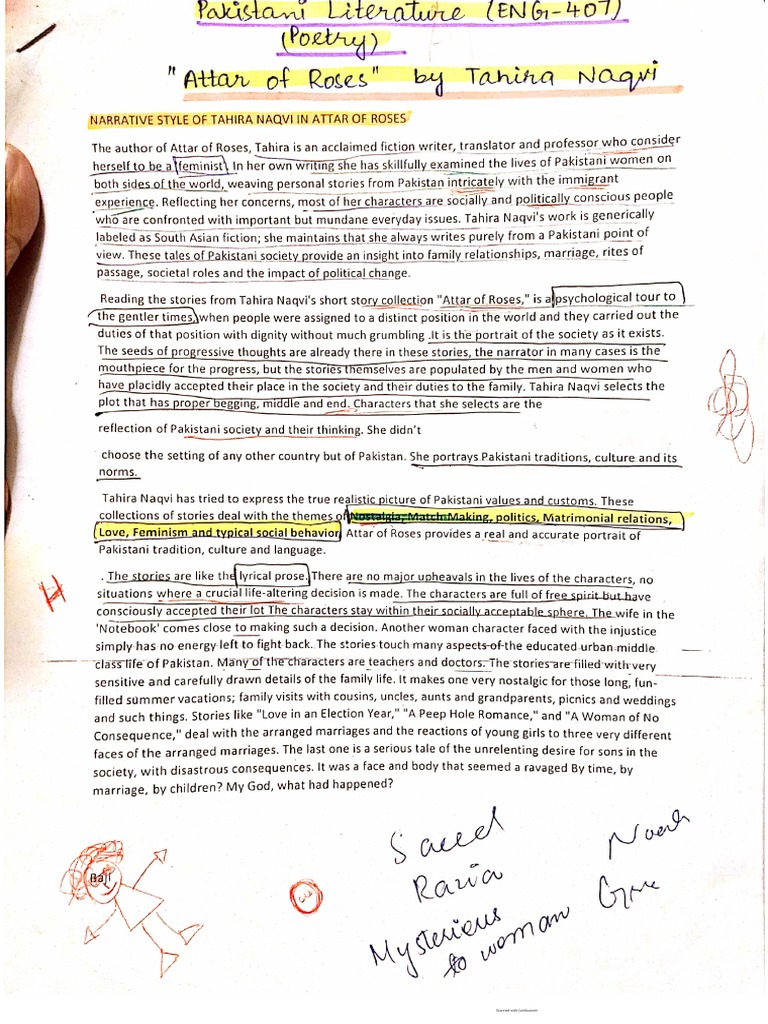 Pakistani Literature (ENG-407)
(Poetry)
"Attar of Roses" by Tahira Naqvi
NARRATIVE STYLE OF TAHIRA NAQVI IN ATTAR OF ROSES
The author of Attar of Roses, Tahira is an acclaimed fiction writer, translator and professor who consider
herself to be a feminist. In her own writing she has skillfully examined the lives of Pakistani women on
both sides of the world, weaving personal stories from Pakistan intricately with the immigrant
experience. Reflecting her concerns, most of her characters are socially and politically conscious people
who are confronted with important but mundane everyday issues. Tahira Naqvi's work is generically
labeled as South Asian fiction; she maintains that she always writes purely from a Pakistani point of
view. These tales of Pakistani society provide an insight into family relationships, marriage, rites of
passage, societal roles and the impact of political change.
Reading the stories from Tahira Naqvi's short story collection "Attar of Roses," is a psychological tour to
the gentler times, when people were assigned to a distinct position in the world and they carried out the
duties of that position with dignity without much grumbling .It is the portrait of the society as it exists.
The seeds of progressive thoughts are already there in these stories, the narrator in many cases is the
mouthpiece for the progress, but the stories themselves are populated by the men and women who
have placidly accepted their place in the society and their duties to the family. Tahira Naqvi selects the
plot that has proper begging, middle and end. Characters that she selects are the
reflection of Pakistani society and their thinking. She didn't
choose the setting of any other country but of Pakistan. She portrays Pakistani traditions, culture and its
norms.
Tahira Naqvi has tried to express the true realistic picture of Pakistani values and customs. These
collections of stories deal with the themes of Nostalgia, Match Making, politics, Matrimonial relations,
Love, Feminism and typical social behavior. Attar of Roses provides a real and accurate portrait of
Pakistani tradition, culture and language.
. The stories are like the lyrical prose. There are no major upheavals in the lives of the characters, no
situations where a crucial life-altering decision is made. The characters are full of free spirit but have
consciously accepted their lot The characters stay within their socially acceptable sphere. The wife in the
'Notebook' comes close to making such a decision. Another woman character faced with the injustice
simply has no energy left to fight back. The stories touch many aspects of the educated urban middle
class life of Pakistan. Many of the characters are teachers and doctors. The stories are filled with very
sensitive and carefully drawn details of the family life. It makes one very nostalgic for those long, fun-
filled summer vacations; family visits with cousins, uncles, aunts and grandparents, picnics and weddings
and such things. Stories like "Love in an Election Year," "A Peep Hole Romance," and "A Woman of No
Consequence," deal with the arranged marriages and the reactions of young girls to three very different
faces of the arranged marriages. The last one is a serious tale of the unrelenting desire for sons in the
society, with disastrous consequences. It was a face and body that seemed a ravaged By time, by
marriage, by children? My God, what had happened?
H
Saeed
Razia
Mysterious
to woman
Baji
Scanned with CamScanner